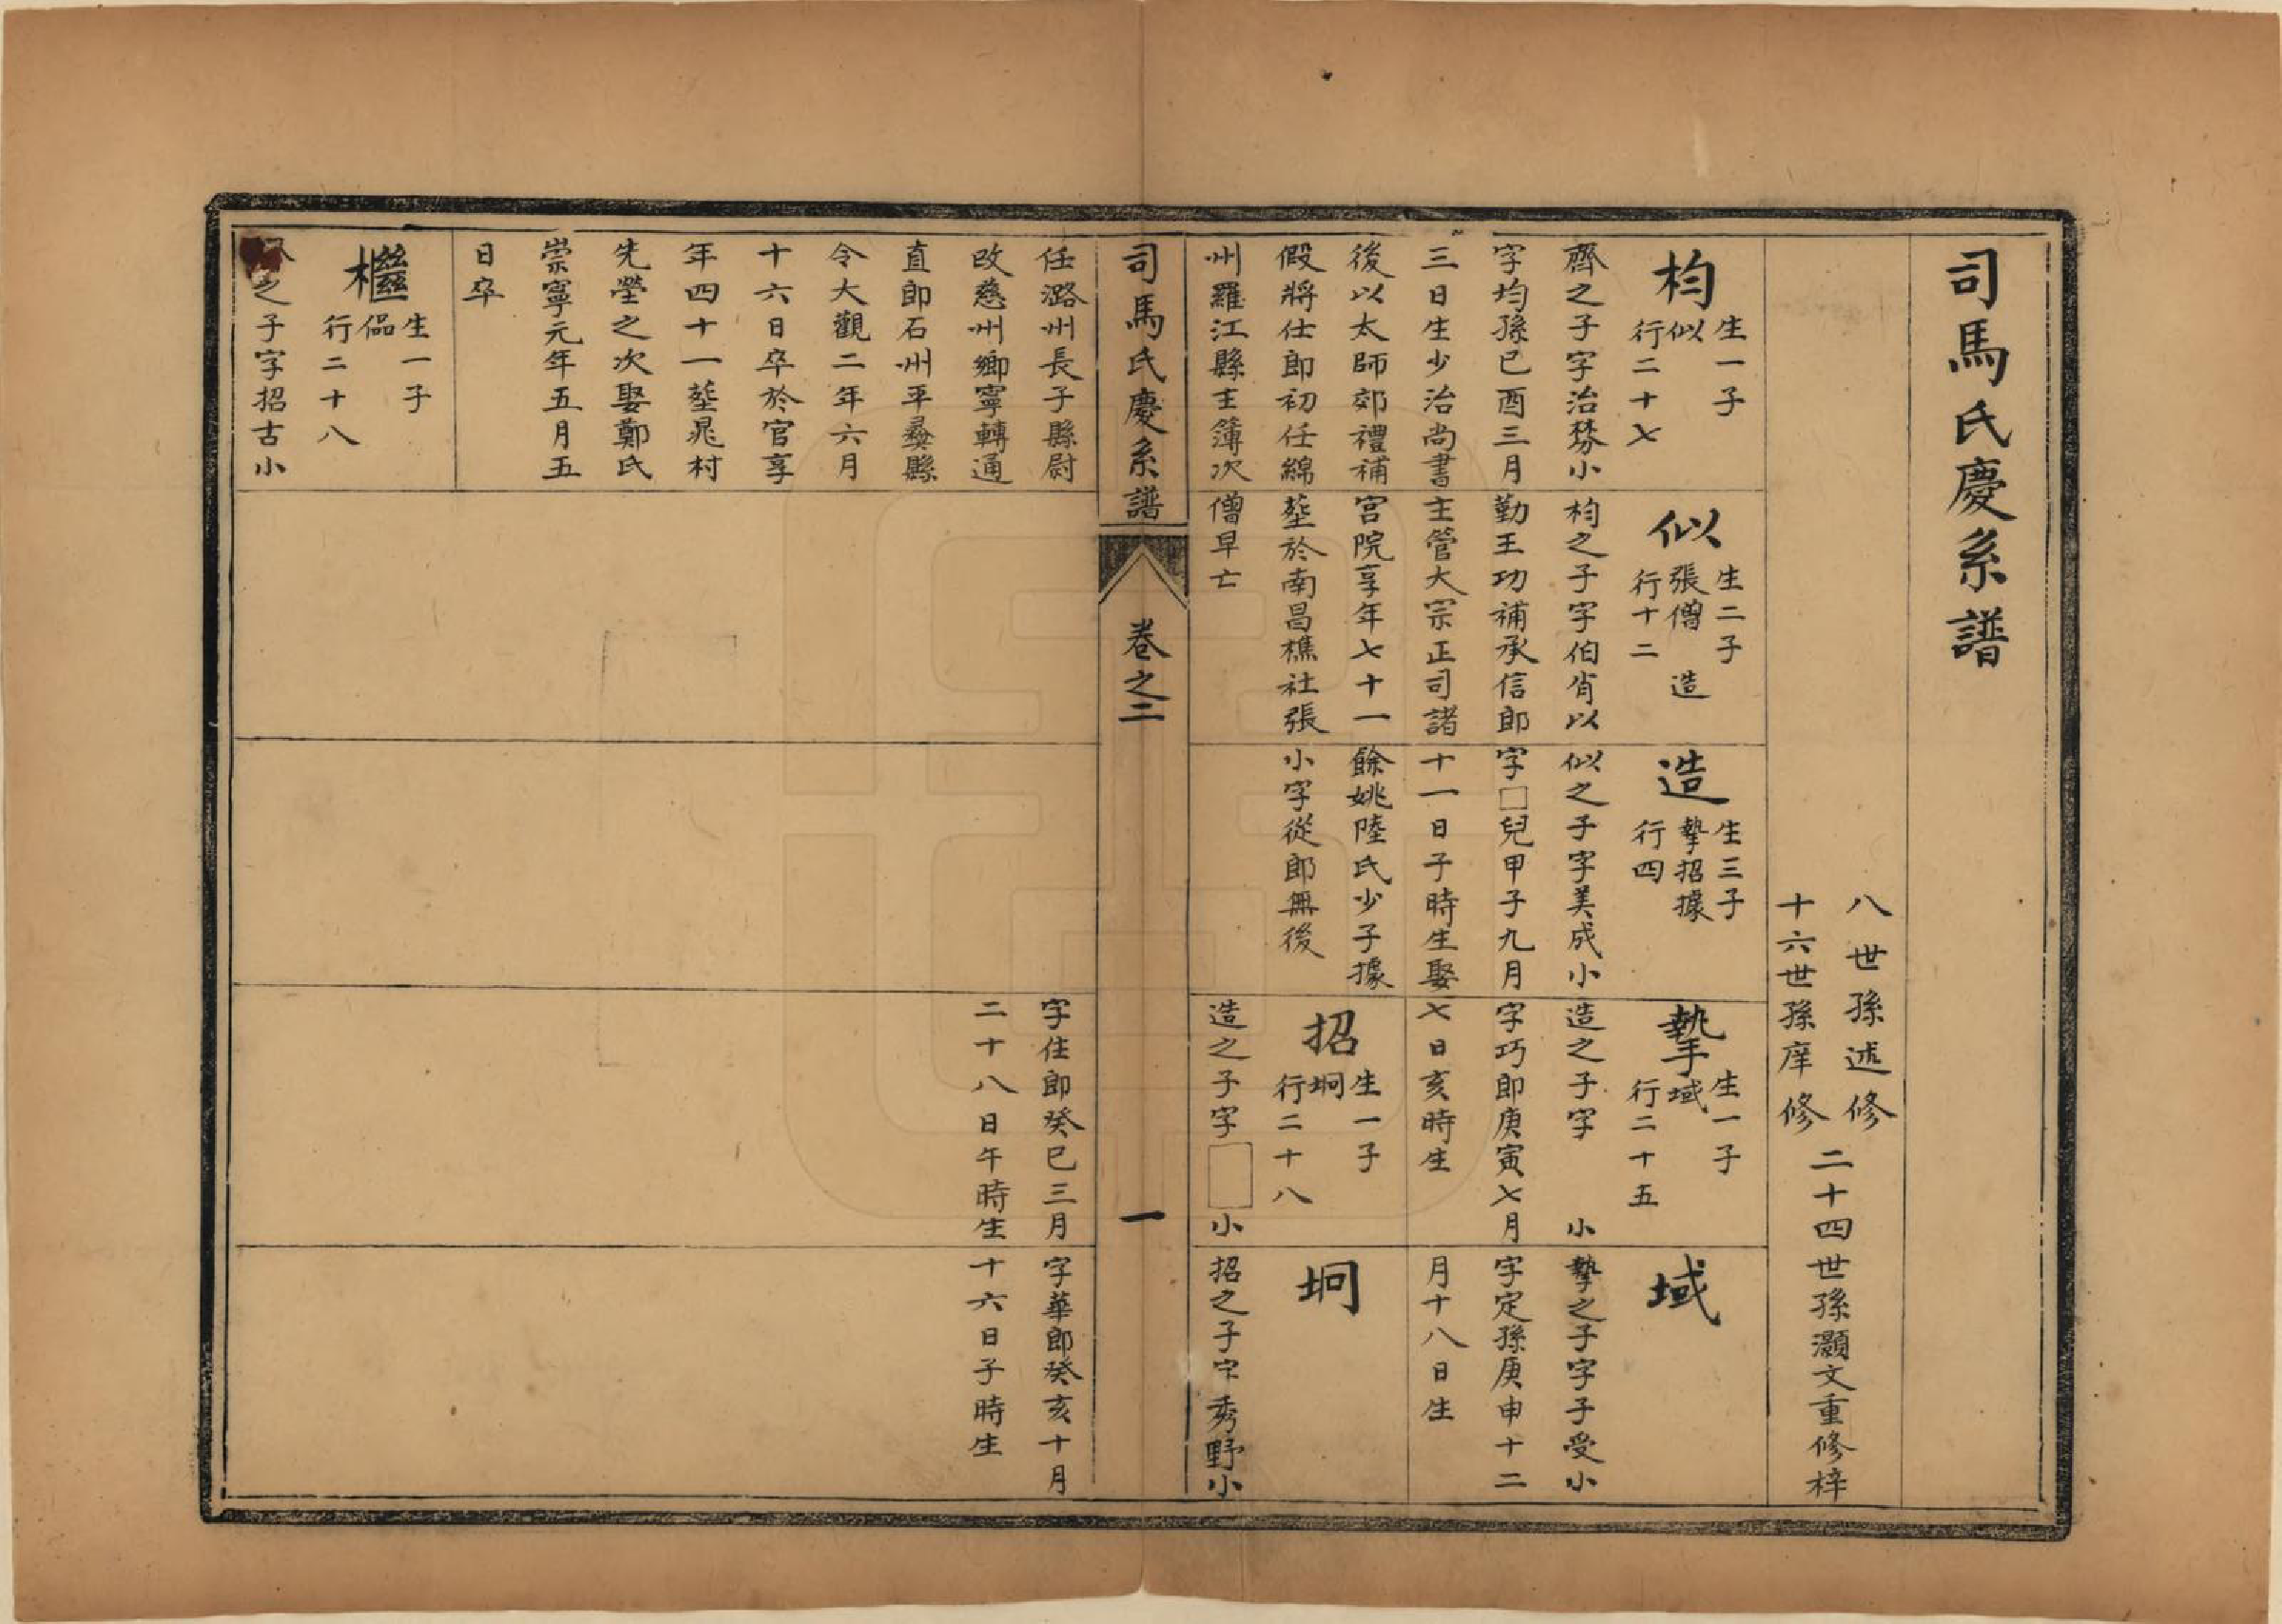 司馬氏慶系譜
八世孫述修
十六世孫庠修
二十四世孫灝文重修梓
枃
生一子
似
行二十七
齊之子字治棼小
字均孫已酉三月
三日生少治尚書
後以太師郊禮補
假將仕郎初任綿
州羅江縣主簿次
似
生二子
張僧 造
行十二
枃之子字伯省以
勤王功補承信郎
主管大宗正司諸
宮院享年七十一
塟於南昌樵社張
僧早亡
造
生三子
摯招據
行四
似之子字美成小
字□兒甲子九月
十一日子時生娶
餘姚陸氏少子據
小字從郎無後
摯
生一子
域
行二十五
造之子字 小
字巧郎庚寅七月
七日亥時生
招
生一子
坰
行二十八
造之子字□小
域
摯之子字子受小
字定孫庚申十二
月十八日生
坰
招之子字秀野小
司馬氏慶系譜
卷之二
一
任潞州長子縣尉
改慈州鄉寧轉通
直郎石州平彝縣
令大觀二年六月
十六日卒於官享
年四十一塟晁村
先塋之次娶鄭氏
崇寧元年五月五
日卒
字住郎癸巳三月
二十八日午時生
字華郎癸亥十月
十六日子時生
生一子
偘
行二十八
之子字招古小